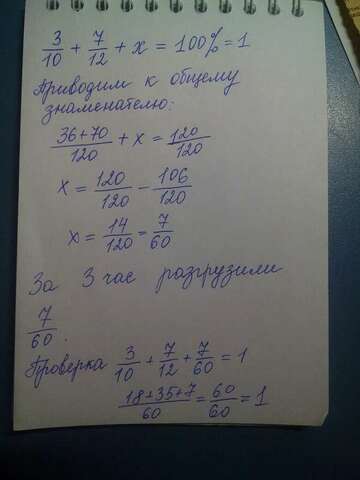 3/10 + 7/12 + x = 100% = 1
Приводим к общему
знаменателю:
36+70/120 + x = 120/120
x = 120/120 - 106/120
x = 14/120 = 7/60
За 3 час разгрузили
7/60.
Проверка 3/10 + 7/12 + 7/60 = 1
18+35+7/60 = 60/60 = 1